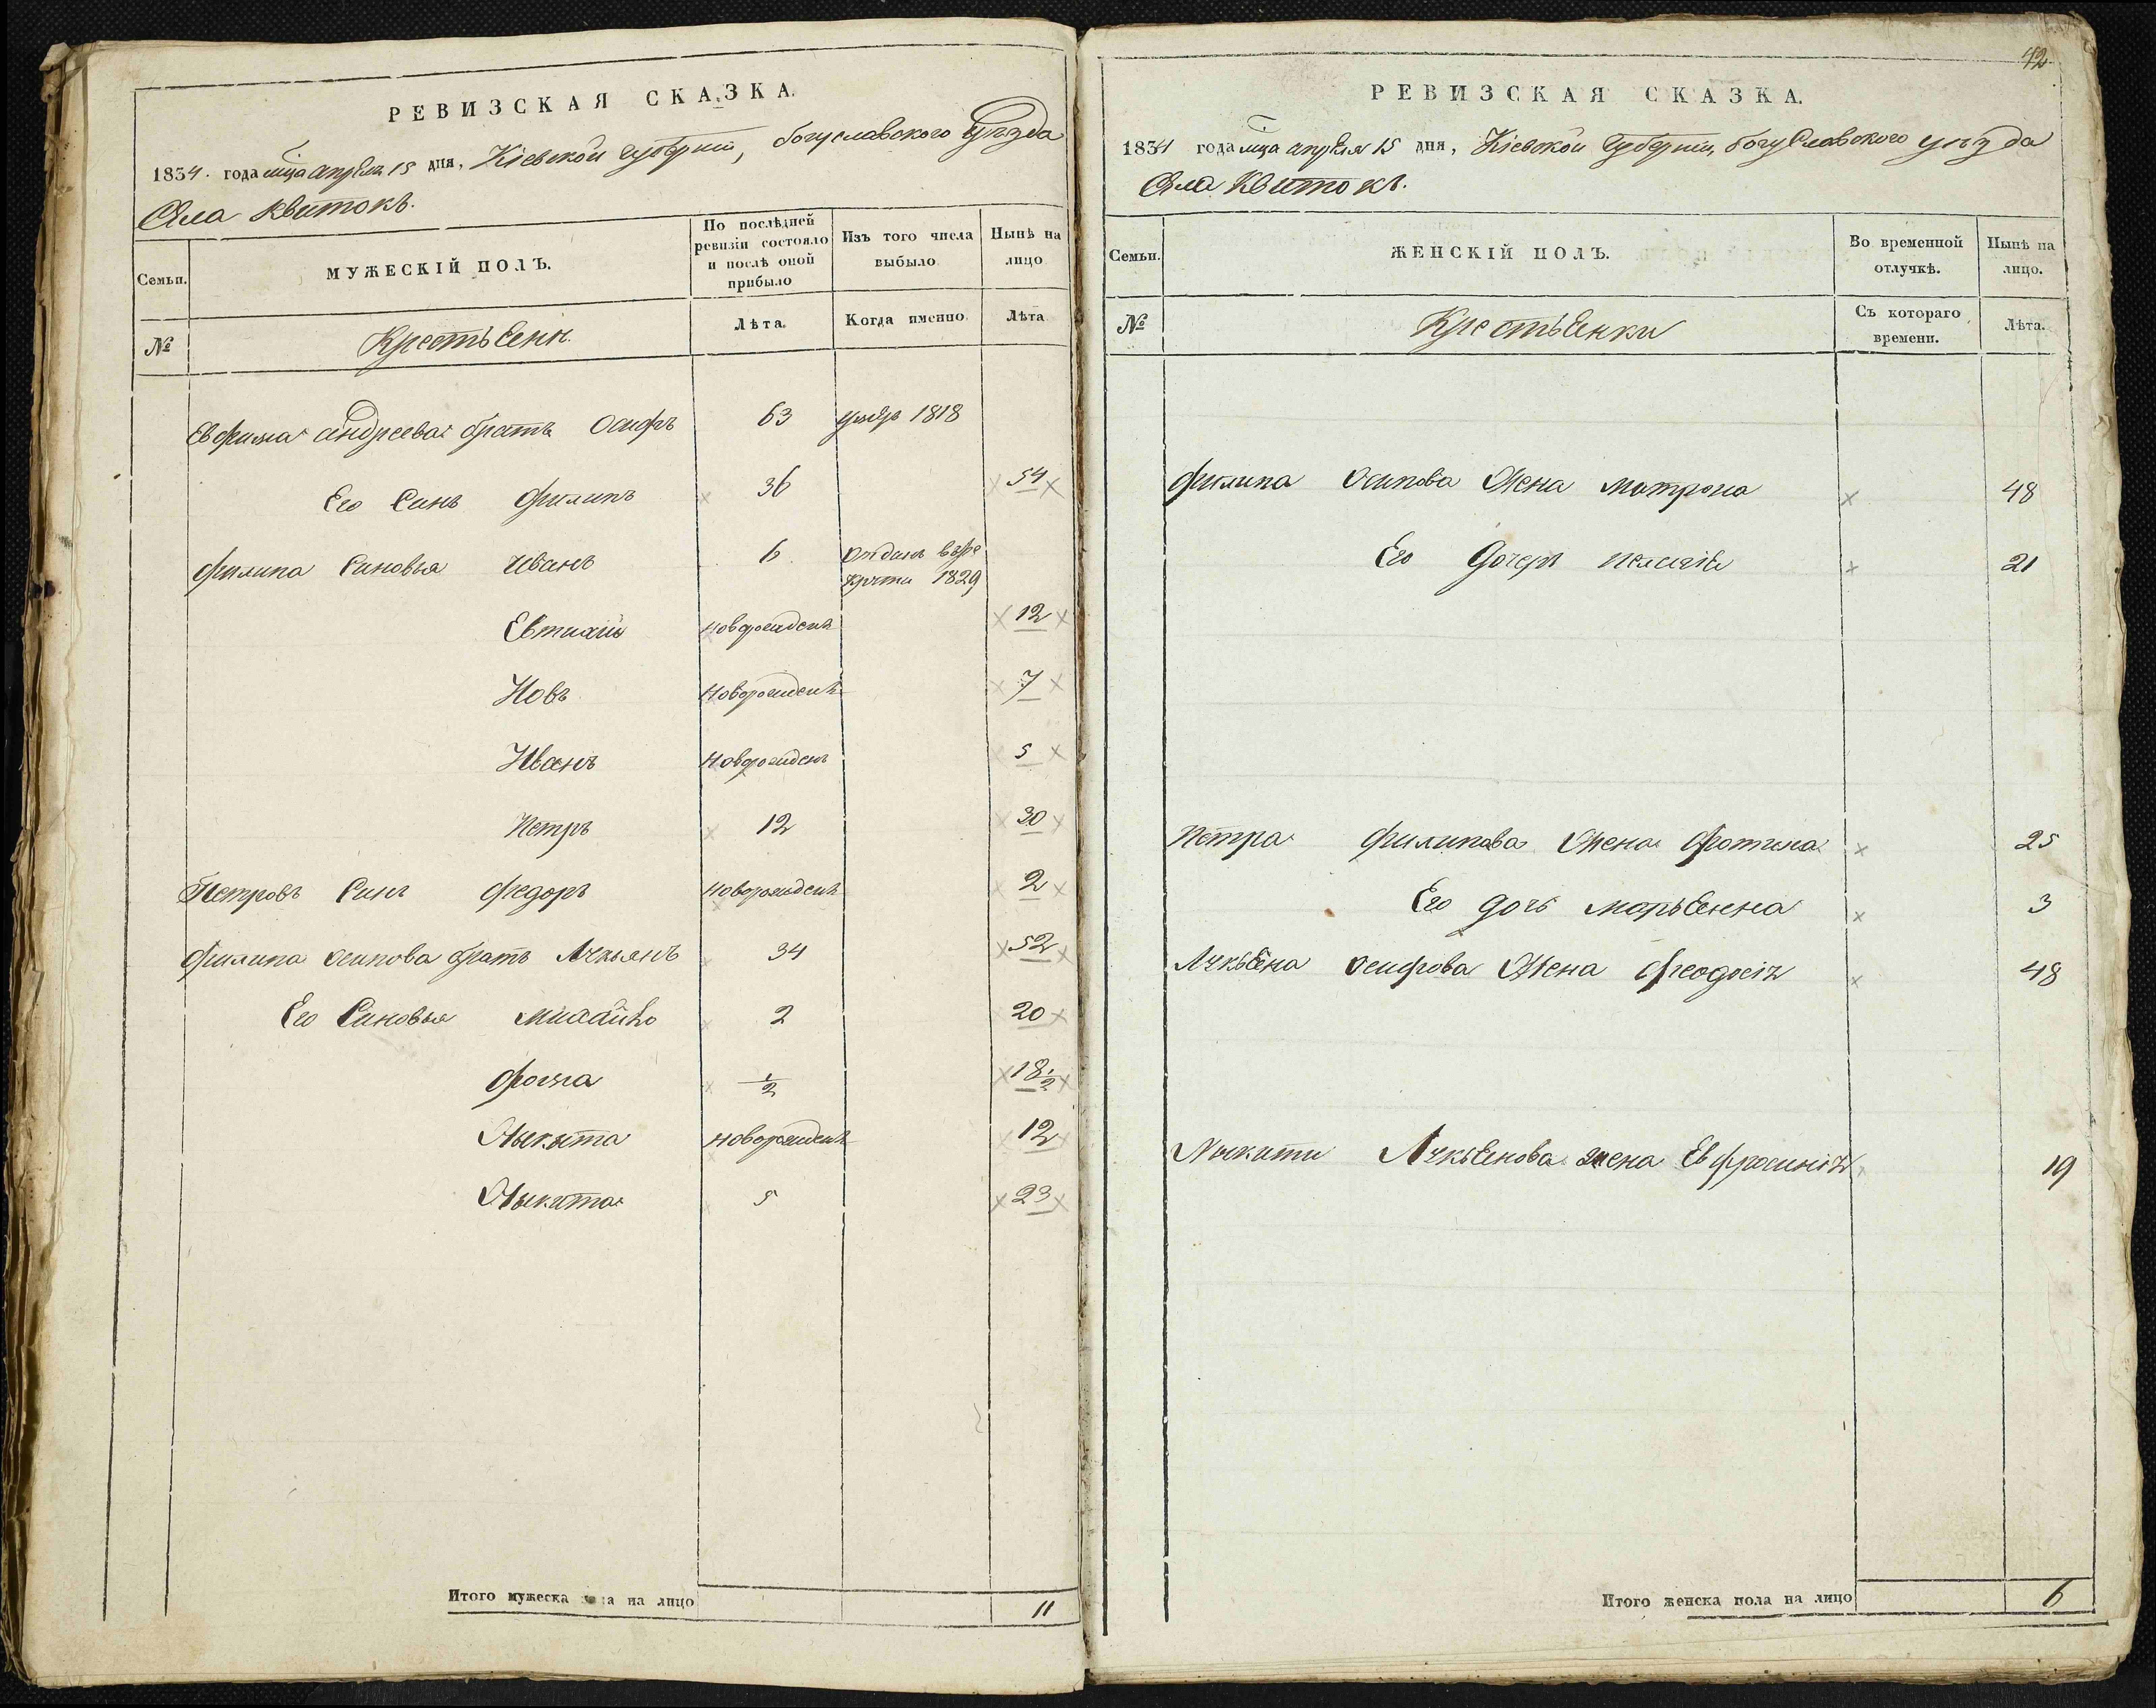 РЕВИЗСКАЯ СКАЗКА.
1834. года мца апреля 15 дня, Кіевской губерніи, богуславского уѣзда
Села Квитокъ.
Семьи.
МУЖЕСКІЙ ПОЛЪ.
По послѣдней ревизіи состояло и послѣ оной прибыло
Изъ того числа выбыло
Нынѣ на лицо
№
Крестьене.
Лѣта.
Когда именно.
Лѣта
Евфима андреева братъ Осифъ 63 умеръ 1818
Его Синъ Филипъ 36 54
Филипа Синовья Иванъ 6 отданъ въ ре
круты 1829
Евтихій новорожденъ 12
Иовъ новорожденъ 7
Иванъ новорожденъ 5
Петръ 12 30
Петровъ Синъ Федоръ новорожденъ 2
Филипа осипова братъ Лукьянъ 34 52
Его Синовья Михайло 2 20
Фома 1/2 18 1/2
Никита новорожденъ 12
Никита 5 23
Итого мужеска на лицо 11
42
РЕВИЗСКАЯ СКАЗКА.
1834 года мца апреля 15 дня, Кіевской губерніи, богуславского уѣзда
Села Квитокъ.
Семьи.
ЖЕНСКІЙ ПОЛЪ.
Во временной отлучкѣ.
Нынѣ на лицо.
№
Крестьенки
Съ котораго времени.
Лѣта.
Филипа Осипова Жена Матрона 48
Его Дочеръ Пелагія 21
Петра Филипова Жена Фотина 25
Его дочь Марьенна 3
Лукьена осифова Жена Феодосія 48
Никити Лукьенова жена Евфросинія 19
Итого женска пола на лицо 6